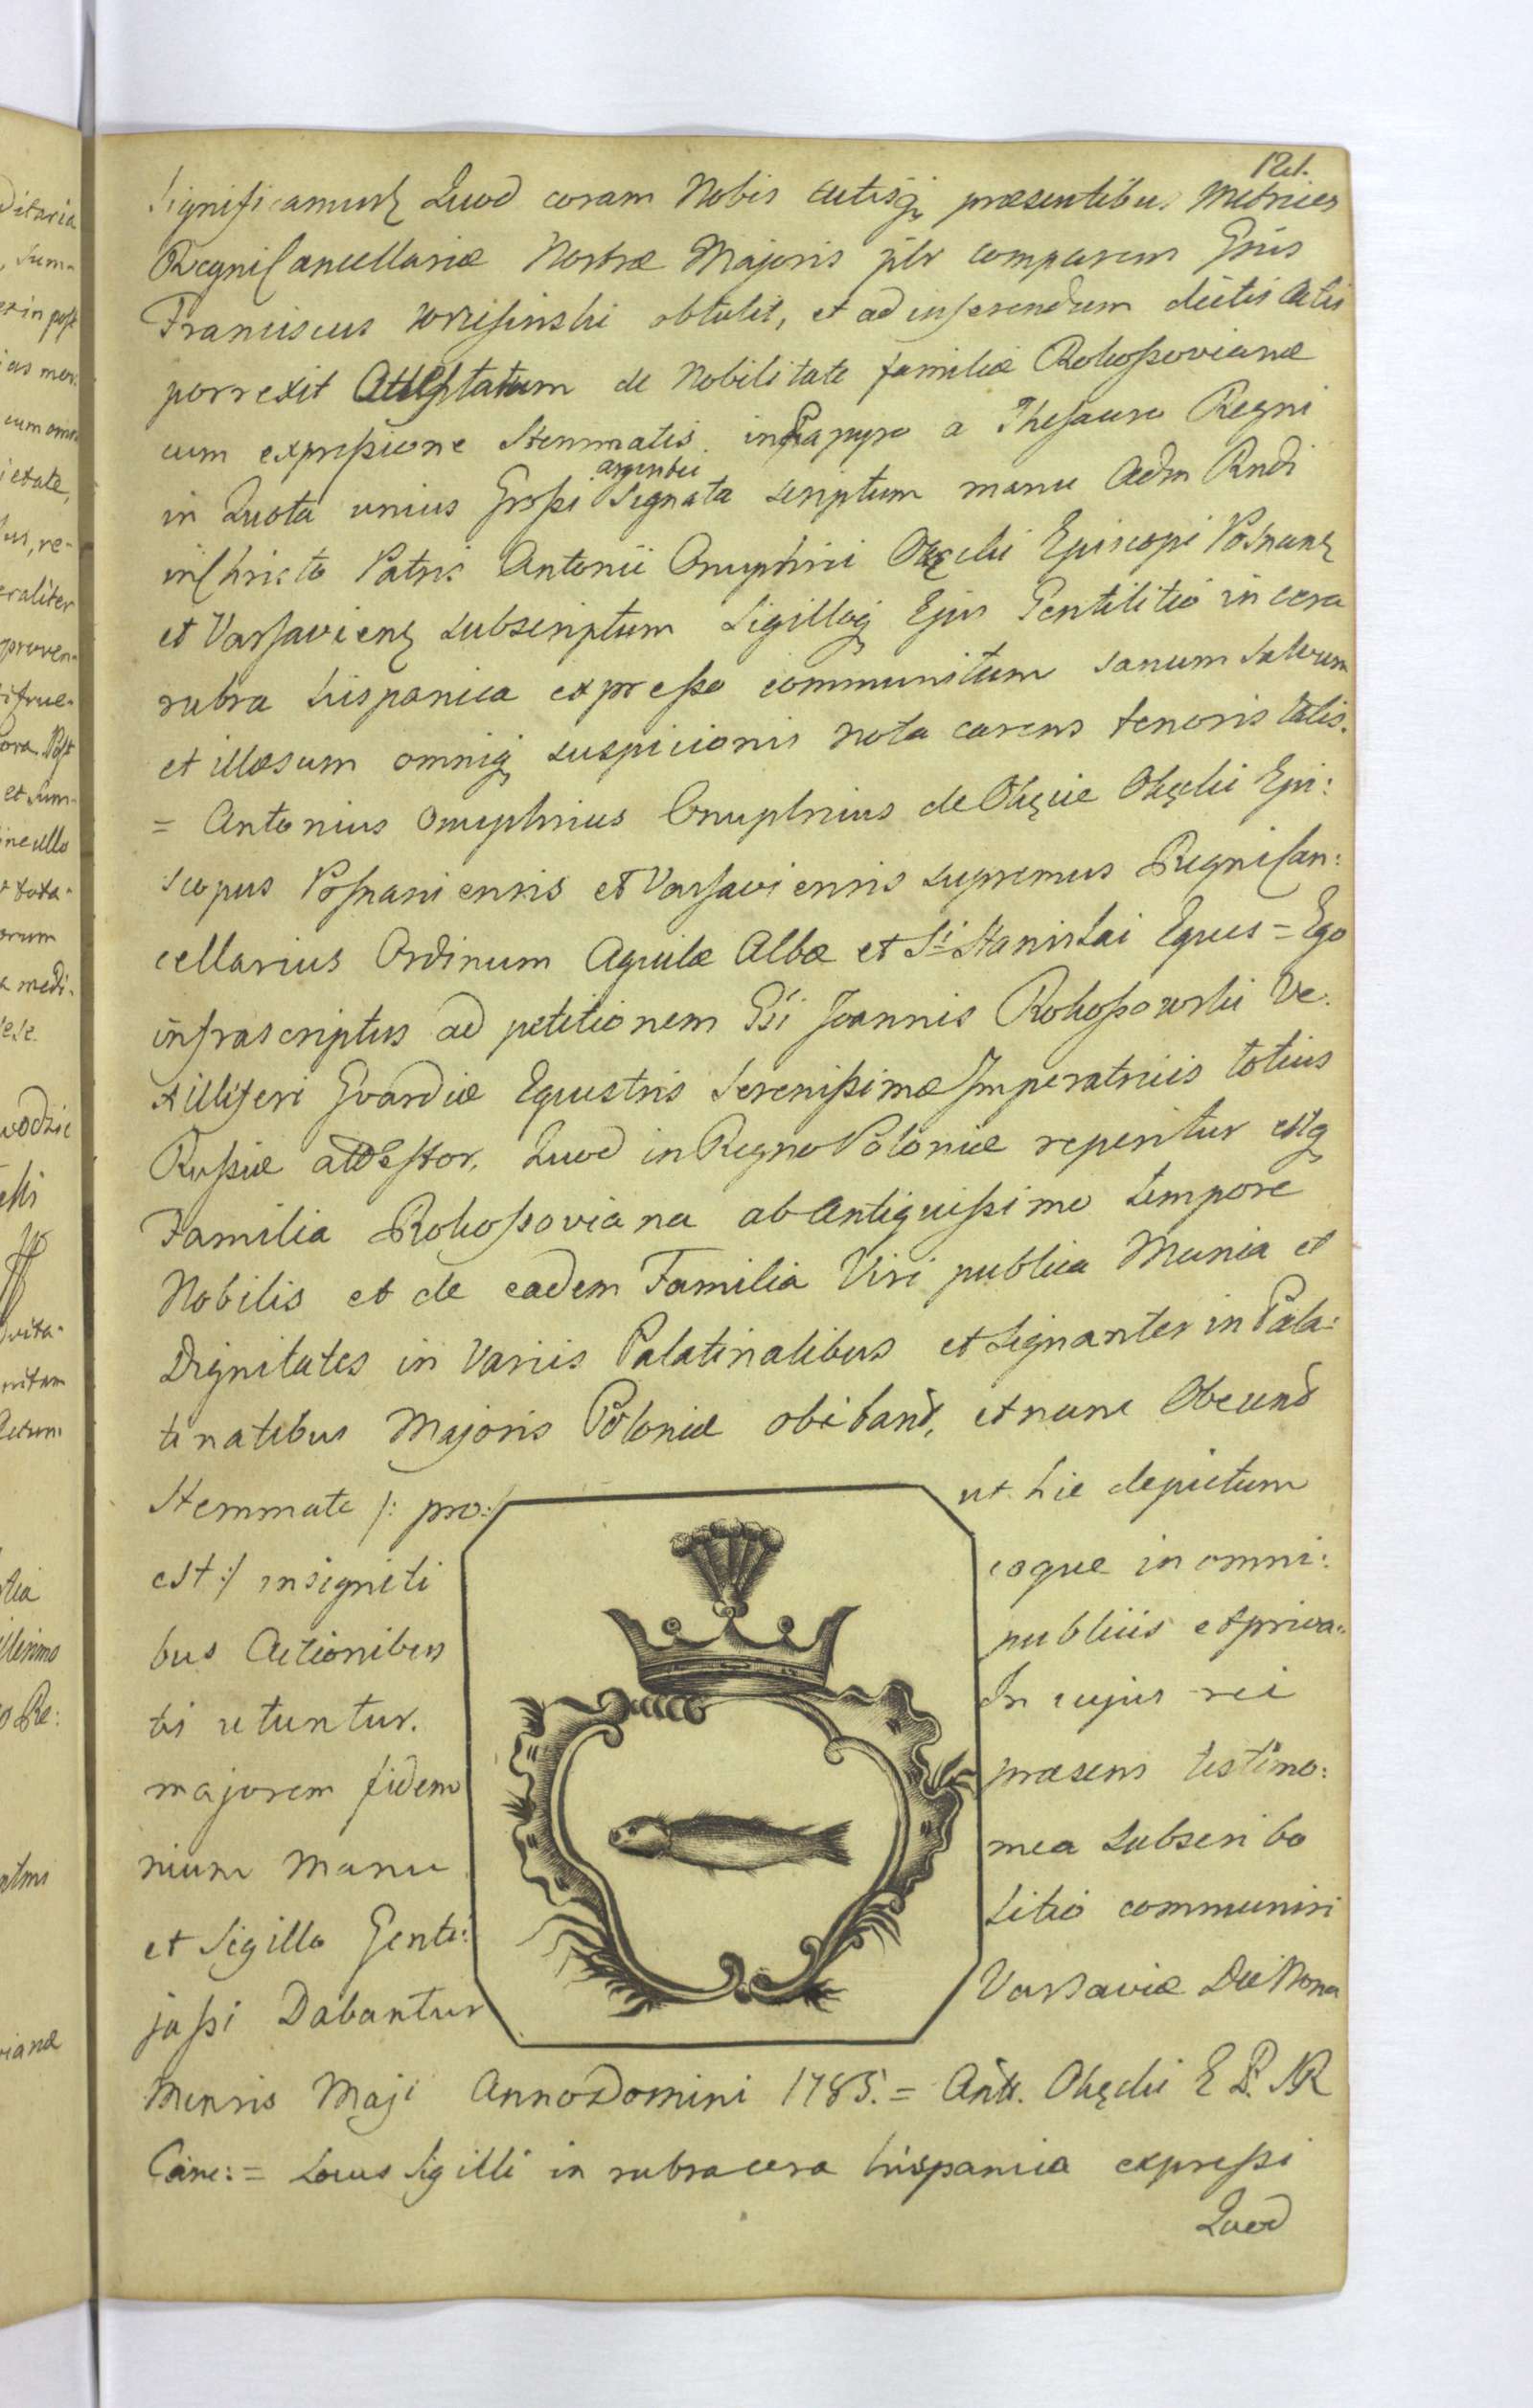 121.
Significamusq Quod coram Nobis Actisq præsentibus Metrices
Regni Cancellariæ Nostræ Majoris plr comparens Gnus
Franciscus Wrzesinski obtulit, et ad inserendum dictis Actis
porrexit Attestatum de Nobilitate familiæ Rokossovianæ
cum expressione Stemmatis in Papyro a Thesauro Regni
in Quota unius Grossi argentei Signata scriptum manu Adm Rndi
in Christo Patris Antonii Onuphrii Okęcki Episcopi Posnanq
et Varsavienq subscriptum Sigilloq Ejus Gentilitio in cera
rubra hispanica expresso communitum sanum salvum
et illæsum omniq suspicionis nota carens tenoris talis.
= Antonius Onuphrius Onuphrius de Okęcie Okęcki Epi:
scopus Posnaniensis et Varsaviensis supremus Regni Can:
cellarius Ordinum Aquilæ Albæ et S̱ti Stanislai Eques = Ego
infrascriptus ad petitionem Gsi Joannis Rokossowski Ve:
xilliferi Gvardiæ Equestris Serenissimæ Imperatricis totius
Russiæ attestor. Quod in Regno Poloniæ reperitur estq
Familia Rokossoviana ab Antiquissimo tempore
Nobilis et de eadem Familia Viri publica Munia et
Dignitates in Variis Palatinatibus et signanter in Pala:
tinatibus Majoris Poloniæ obibant, et nunc Obeunt
Stemmate /: pro: ut hic depictum
est :/ insigniti eoque in omni:
bus Actionibus publicis et priva:
tis utuntur. In cujus rei
majorem fidem præsens testimo:
nium manu mea subscribo
et Sigillo Genti: litio communiri
jussi Dabantur Varsaviæ Die Nona
Mensis Maji Anno Domini 1785. = Antt. Okęcki E P. W
Canc: = Locus Sigilli in rubra cera hispanica expressi
Quod